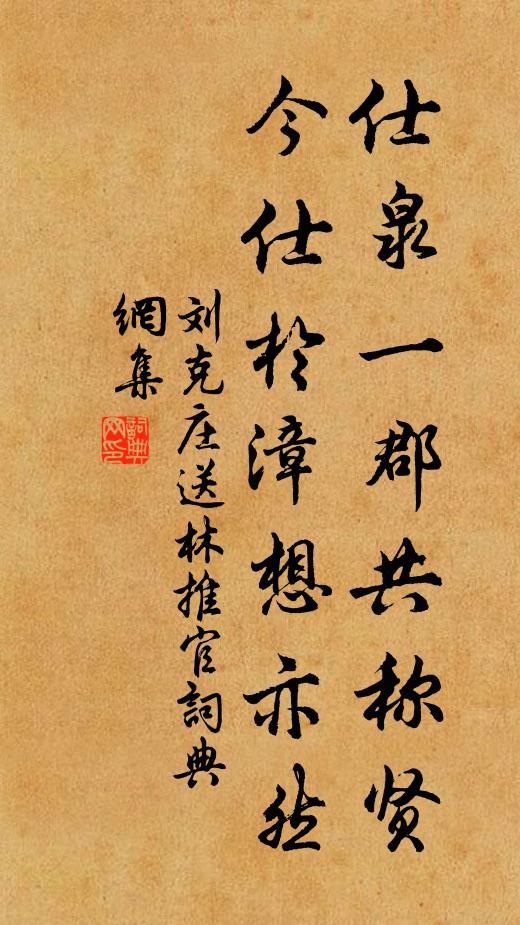 仕泉一郡共称贤
今仕於漳想亦然
刘克庄送林推官詞典
網集
詞典
网印